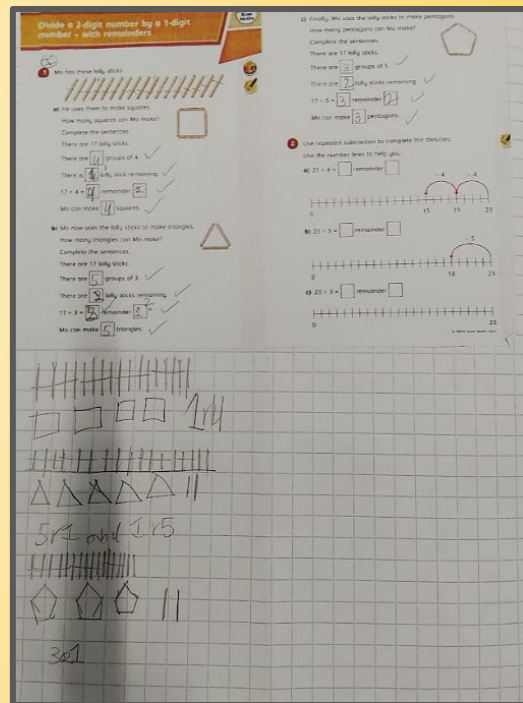 Divide a 2-digit number by a 1-digit
number – with remainders
1 Mo has these lolly sticks.
a) He uses them to make squares.
How many squares can Mo make?
Complete the sentences.
There are 17 lolly sticks.
There are 4 groups of 4
There is 1 lolly stick remaining.
17 ÷ 4 = remainder
Mo can make 4 squares.
b) Mo now uses the lolly sticks to make triangles.
How many triangles can Mo make?
Complete the sentences.
There are 17 lolly sticks.
There are 5 groups of 3
There are 2 lolly sticks remaining.
17 ÷ 3 = 5 remainder
Mo can make 5 triangles.
c) Finally, Mo uses the lolly sticks to make pentagons.
How many pentagons can Mo make?
Complete the sentences.
There are 17 lolly sticks.
There are 3 groups of 5
There are 2 lolly sticks remaining.
17 ÷ 5 = 3 remainder 2
Mo can make 3 pentagons.
2 Use repeated subtraction to complete the divisions.
Use the number lines to help you.
a) 23 ÷ 4 = remainder
– 4 – 4
0 15 19 23
b) 23 ÷ 5 = remainder
– 5
0 18 23
c) 23 ÷ 3 = remainder
0 23
1r4
5r1 and 1r5